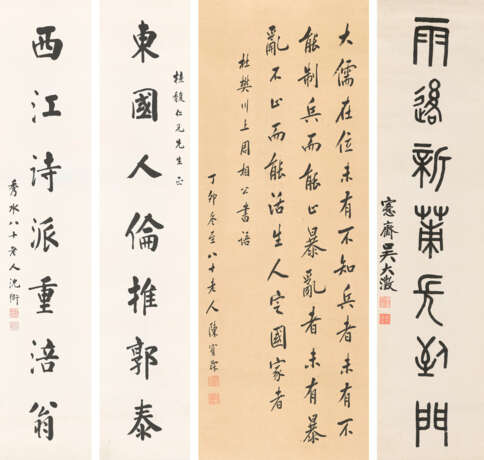 雨後新 長 門
愙齋吳大澂
大儒在位未有不知兵者未有不
能制兵而能止暴亂者未有暴
亂不止而能活生人定國家者
杜樊川上周相公書語
丁卯冬至八十老人陳寶琛
桂馥仁兄先生正
東國人倫推郭泰
西江詩派重涪翁
秀水八十老人沈衛